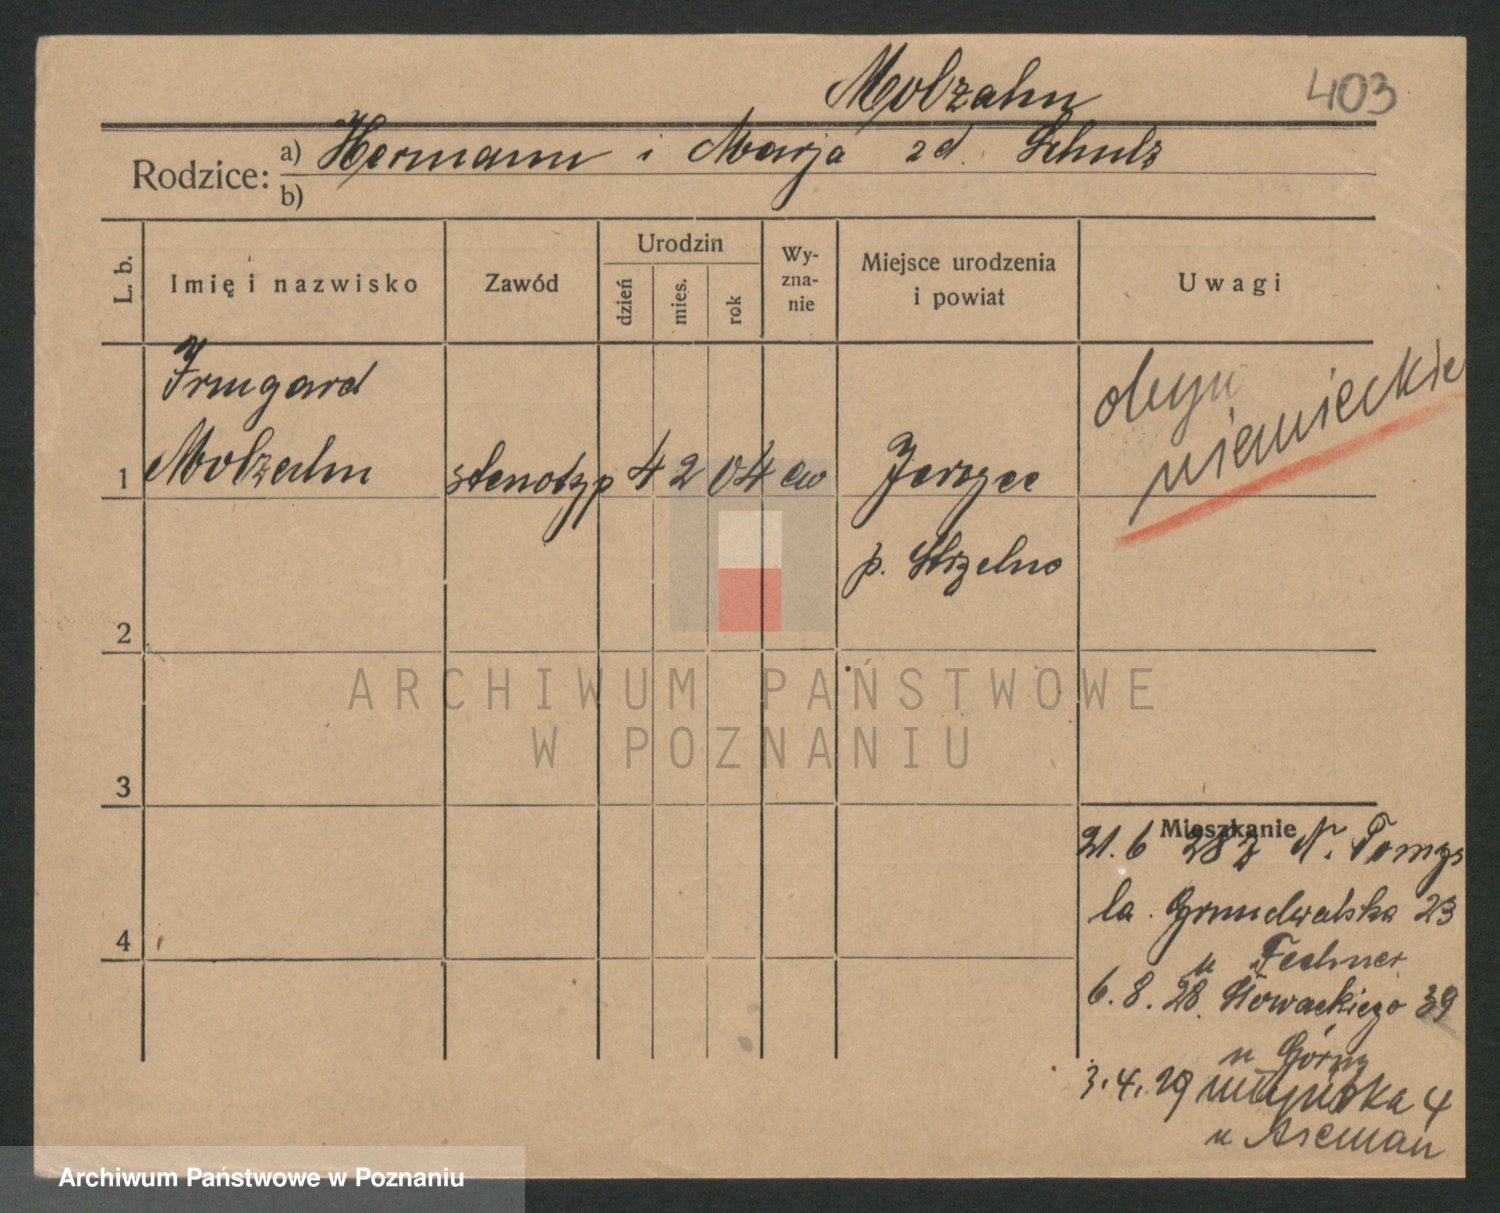 Molzahn 403
Rodzice: a) Hermann i Marja zd. Schulz
b)
L. b. Imię i nazwisko Zawód Urodzin dzień mies. rok Wy-zna-nie Miejsce urodzenia i powiat Uwagi
Irmgard
1 Molzahn stenotyp 4 2 04 ew Jerzyce
p. Strzelno
obyw
niemieckie
2
3
4
Mieszkanie
21.6 28 z N. Tomys
la. Grundwalska 23
u Fechner
6.8.28. Słowackiego 39
u Górny
3.4.29 4
u
ARCHIWUM PAŃSTWOWE
W POZNANIU
Archiwum Państwowe w Poznaniu